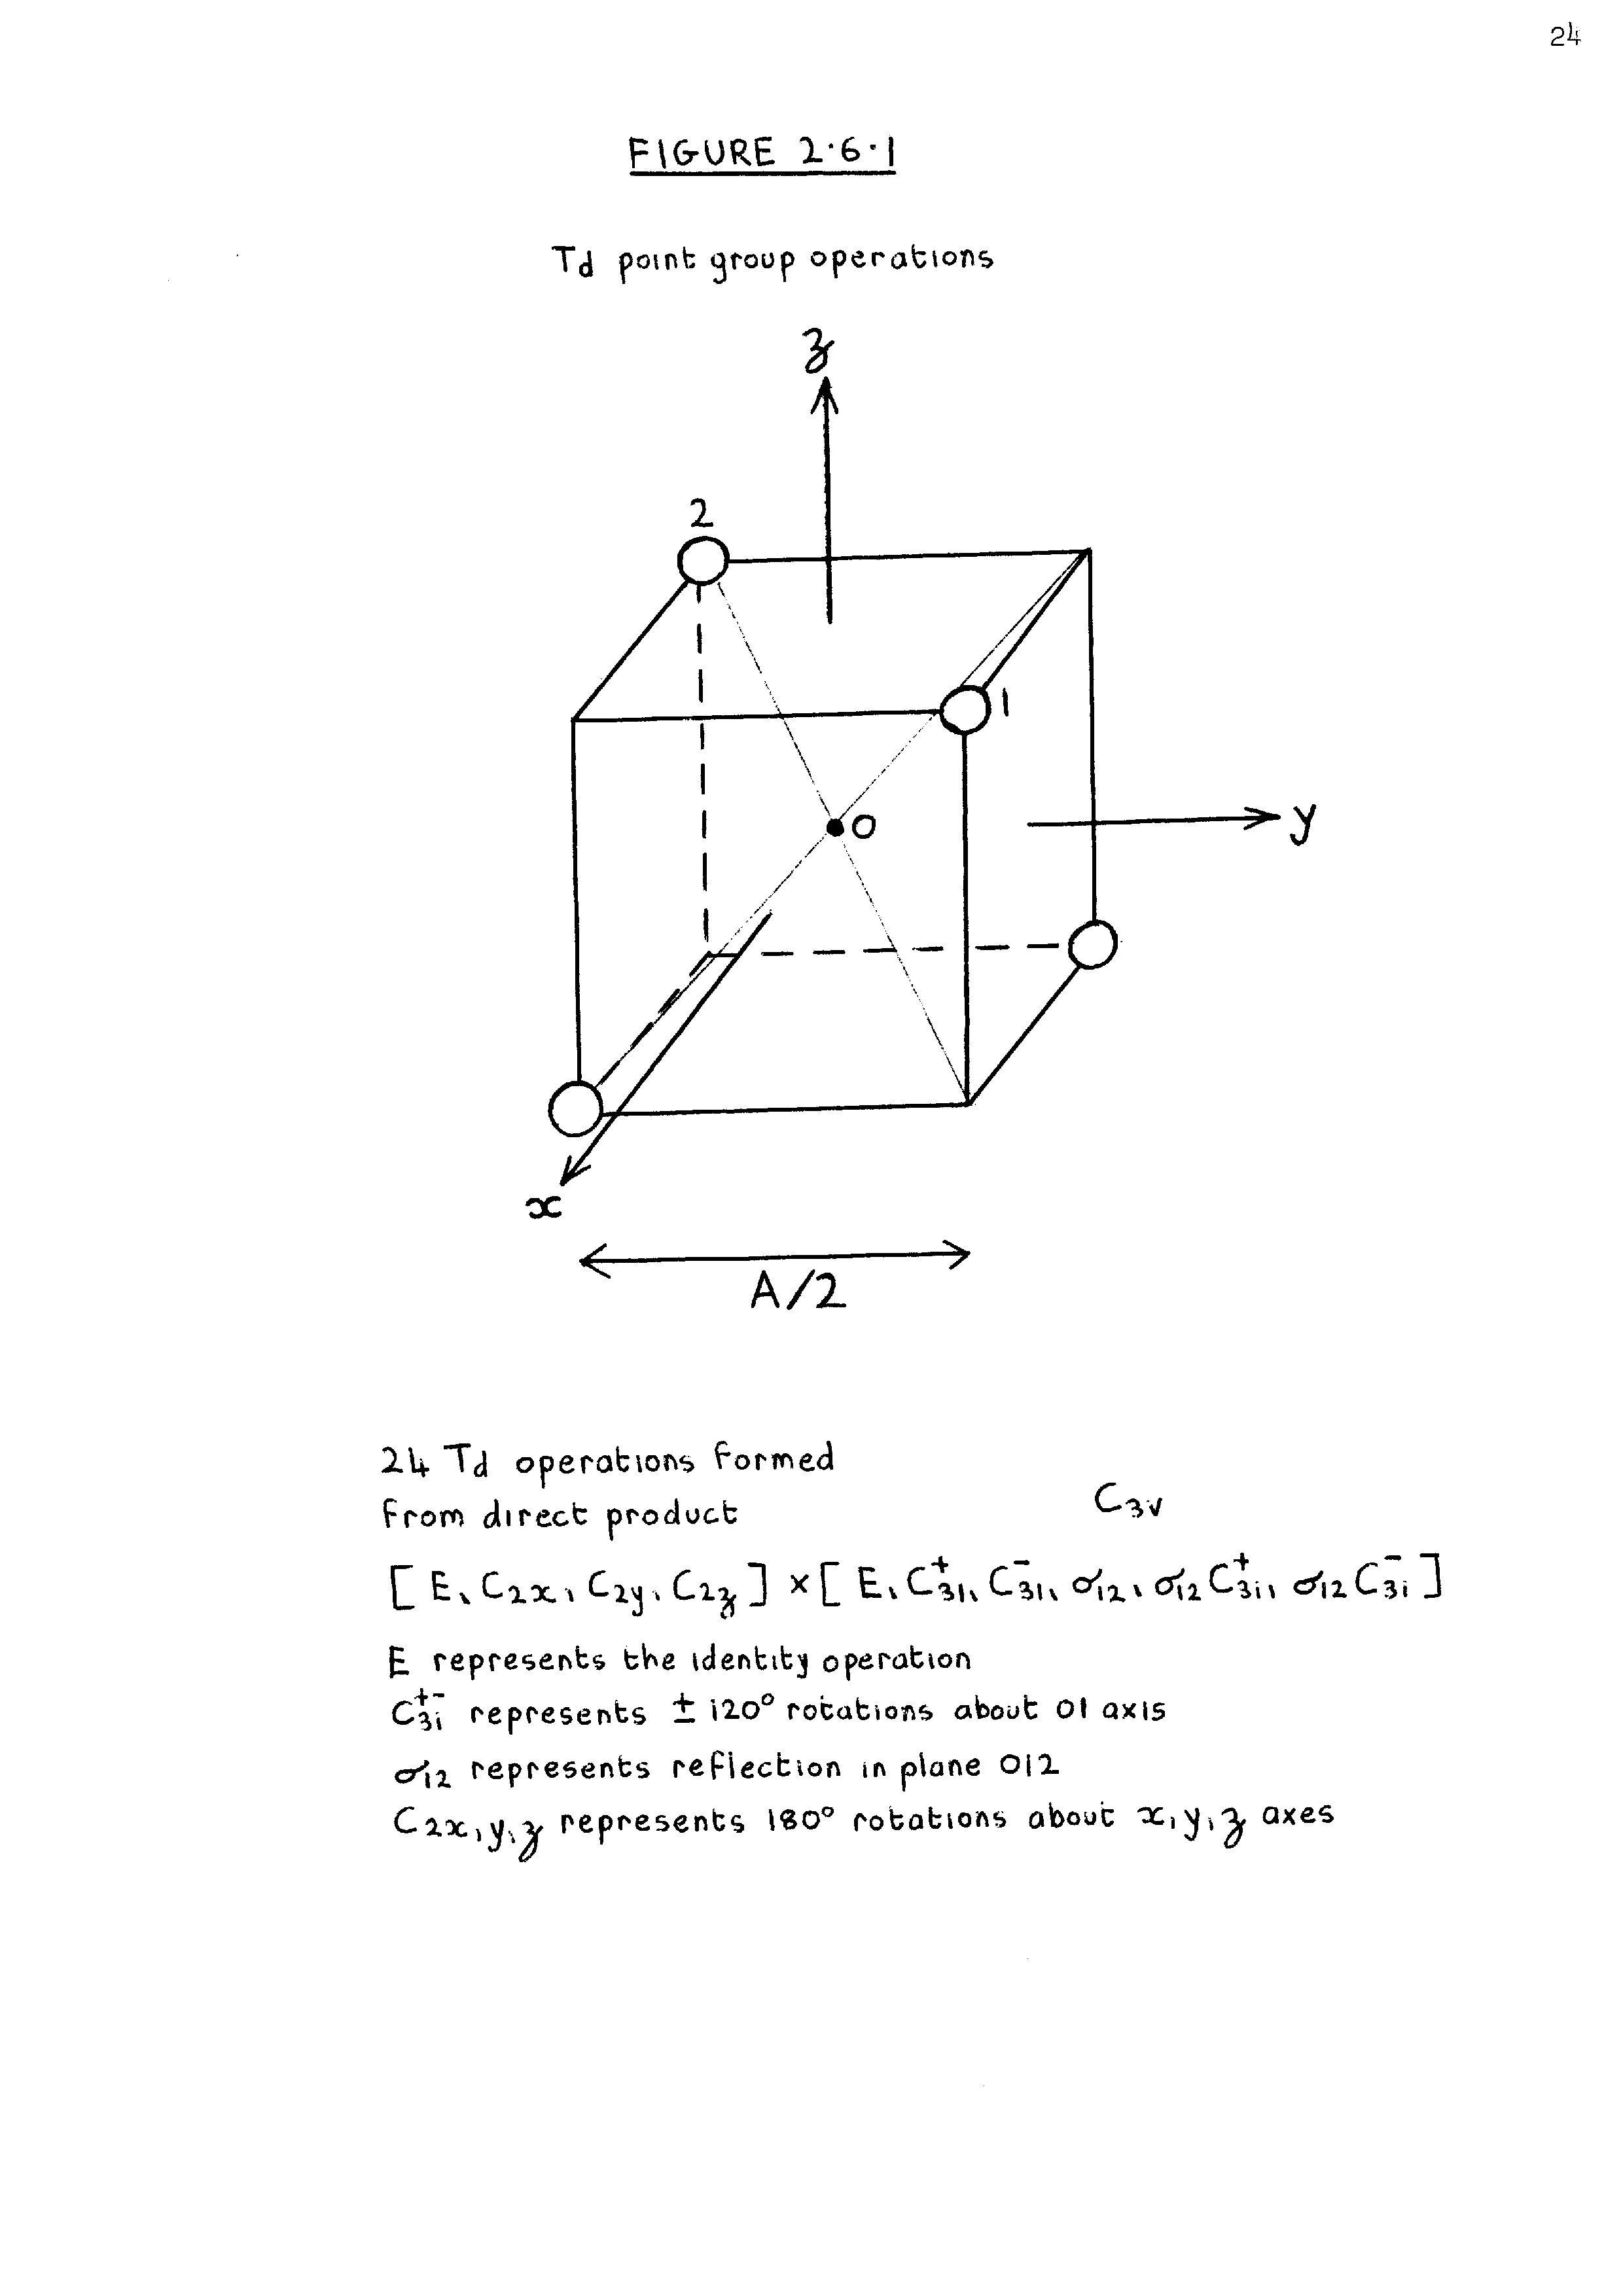 24
FIGURE 2·6·1
Td point group operations
z
2
1
O
y
x
A/2
24 Td operations formed
from direct product
C3v
[ E, C2x, C2y, C2z ] × [ E, C31⁺, C31⁻, σ12, σ12 C31⁺, σ12 C31⁻ ]
E represents the identity operation
C31⁺⁻ represents ± 120° rotations about 01 axis
σ12 represents reflection in plane 012
C2x,y,z represents 180° rotations about x, y, z axes